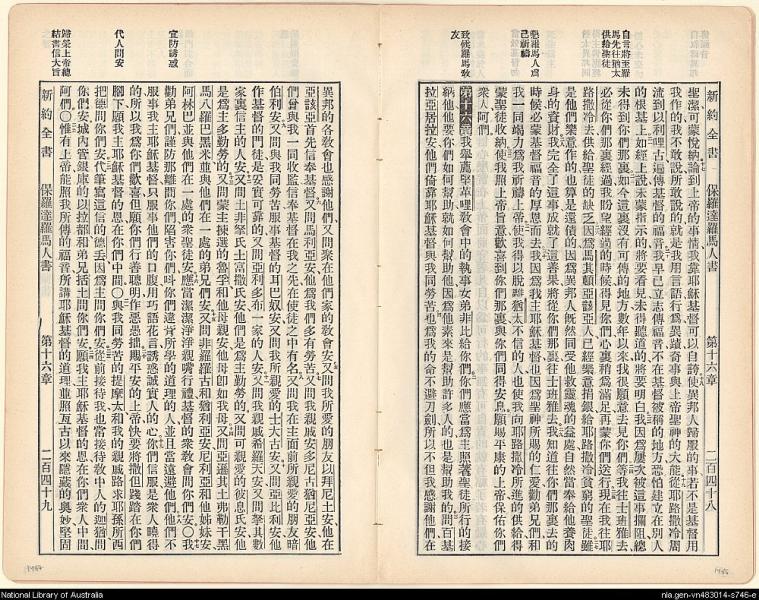 自言將至羅
馬先往猶大
供給聖徒
懇羅馬人為
己祈禱
致候羅馬教
友
新約全書 保羅達羅馬人書 第十六章 二百四十八
聖潔可蒙悅納論到上帝的事情我靠耶穌基督可以自誇使異邦人歸服的事若不是基督用
我作的我不敢說所敢說的就是我用言語行為異蹟奇事與上帝聖神的大能從耶路撒冷周
流到以利哩古遍傳基督的福音我早已立志傳福音不在基督被稱的地方恐怕建立在別人
的根基上如經上說未蒙指示的將要看見未得聽道的將要明白我因為屢次被這事攔阻總
未得到你們那裏如今這裏沒有可傳的地方數年以來我很願意去見你們等我往士班雅去
必從你們那裏經過我盼望經過的時候得見你們心裏稍為滿足再蒙你們送行現在我往耶
路撒冷去供給聖徒的缺乏因為馬其頓亞該亞人已經樂意捐銀給耶路撒冷貧窮的聖徒雖
是他們樂意作的也算是還債的因為異邦人旣然同受他教靈魂的益處自然當奉給他養肉
身的資財我完全了這事成就了這善果將從你們那裏往士班雅去我知道往你們那裏去的
時候必蒙基督福音的厚恩而去我因為我主耶穌基督也因為聖神所賜的仁愛勸弟兄們和
我一同竭力為我祈禱上帝使我得以脫離猶太不信的人也使我向耶路撒冷所進的供給得
蒙聖徒收納使我照上帝旨意歡喜到你們那裏與你們同得安息願賜平康的上帝保佑你們
衆人阿們
第十六章我舉薦堅革哩教會中的執事女弟非比給你們你們應當為主照著聖徒所行的接
納他他要你們如何幫助就如何幫助他因為他素來是幫助許多人的也是幫助我的問百基
拉亞居拉安他們倚靠耶穌基督與我同勞苦也為我的命不避刀劍所以不但我感謝他們在
宜防誘惑
代人問安
歸榮上帝總
結書信大旨
異邦的各教會也感謝他們又問衆在他們家的教會安又問我所愛的朋友以拜尼土安他在
亞該亞首先信奉基督又問馬利亞安他為我們多有勞苦又問我親戚安多尼古猶尼亞安他
們曾與我一同收監信奉基督在我之先在使徒之中有名又問我在主面前所親愛的朋友暗
伯利安又問與我同勞苦服事基督的耳巴奴安又問我所親愛的士大古安又問亞比利安他
作基督的門徒是妥實可靠的又問亞利多布一家的人安又問我親戚希羅天安又問拏其數
家裏信主的人安又問土非拏氏土富撒氏安他們是為主勤勞的又問可親愛的彼息氏安他
是為主多勤勞的又問蒙主揀選的魯孚和他母親安他母卽如我母又問亞遜其土弗勒干黑
馬八羅巴黑米並與他們在一處的弟兄們安又問非羅羅古和猶利亞安尼利亞和他姊妹安
阿林巴並與他們在一處的衆聖徒安應當潔潔淨淨親嘴行禮基督的衆教會問你們安〇我
勸弟兄們謹防那離間你們陷害你們叫你們違背所學的道理的人並且當遠避他們他們不
服事我主耶穌基督只服事他們的口腹用巧語花言誘惑誠實人的心你們信服是衆人曉得
的所以我為你們歡喜但願你們行善聰明作惡愚拙賜平安的上帝快要將撒但踐踏在你們
腳下願我主耶穌基督的恩在你們中間〇與我同勞苦的提摩太和我的親戚路求耶孫所西
把德問你們安代筆寫這信的德丢因為主問你們安從前接待我也常接待敎中人的迦猶問
你們安城內管銀庫的以拉都和弟兄括土問你們安願我主耶穌基督的恩在你們衆人中間
阿們〇惟有上帝能照我所傳的福音所講耶穌基督的道理並照亙古以來隱藏的奧妙堅固
新約全書 保羅達羅馬人書 第十六章 二百四十九
National Library of Australia
nla.gen-vn483014-s746-e